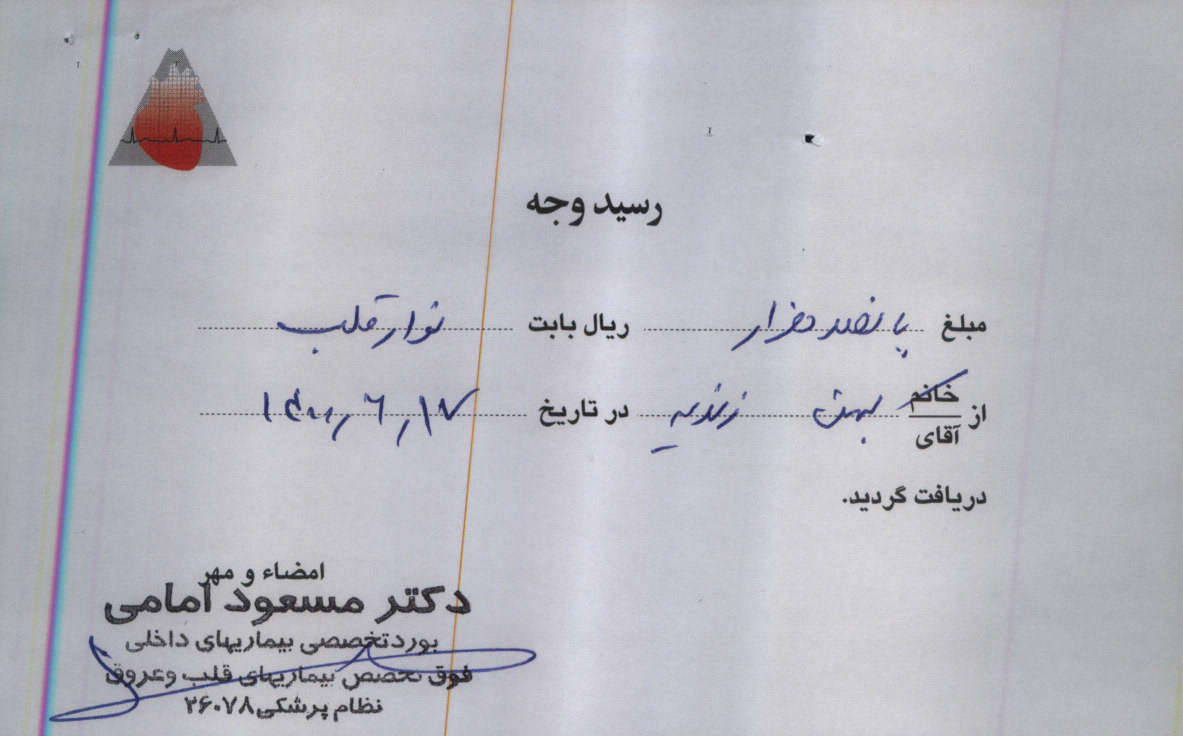 رسید وجه
مبلغ پانصد هزار ریال بابت نوار قلب
از خانم
آقای بهمن زندیه در تاریخ ۱۴۰۰,۶,۱۷
دریافت گردید.
امضاء و مهر
دکتر مسعود امامی
بورد تخصصی بیماریهای داخلی
فوق تخصص بیماریهای قلب وعروق
نظام پرشکی ۲۶۰۷۸